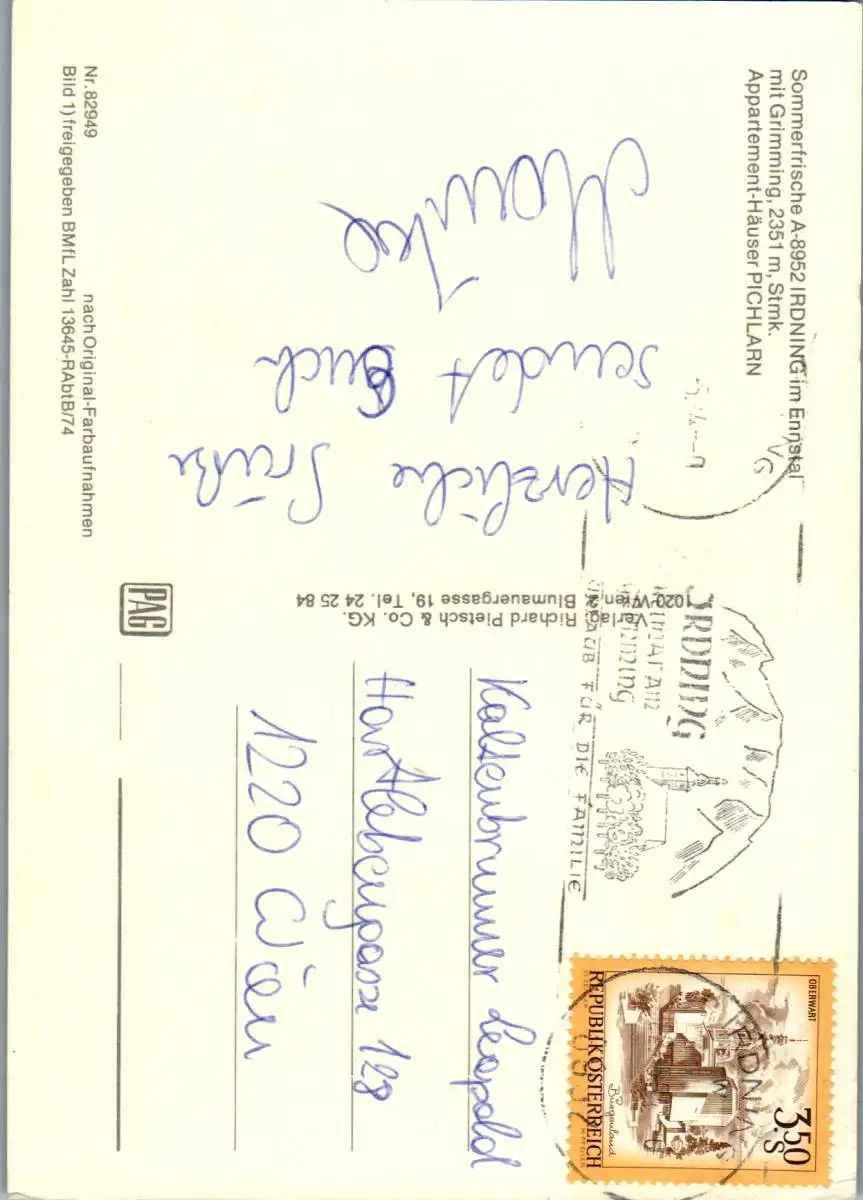 Sommerfrische A-8952 IRDNING im Ennstal
mit Grimming, 2351 m, Stmk.
Appartement-Häuser PICHLARN
Herzliche Grüße
sendet Euch
Monika
Nr. 82949 nach Original-Farbaufnahmen
Bild 1) freigegeben BMfL Zahl 13645-RAbtB/74
Verlag Richard Pietsch & Co. KG.
1020 Wien, Blumauergasse 19, Tel. 24 25 84
PAG
IRDNING
URLAUB FÜR DIE FAMILIE
OBERWART
3.50
S
Burgenland
REPUBLIK ÖSTERREICH
IRDNING
Kaltenbrunner Leopold
Hartlebengasse 128
1220 Wien